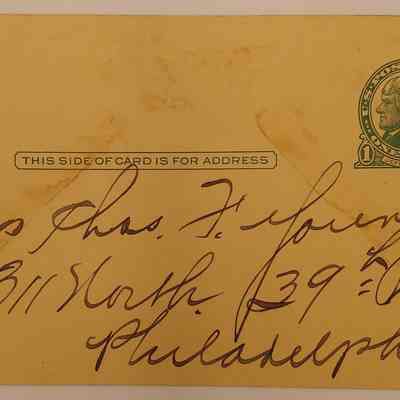 1
THIS SIDE OF CARD IS FOR ADDRESS
s Chas. F. Youn
311 North 39th
Philadelph